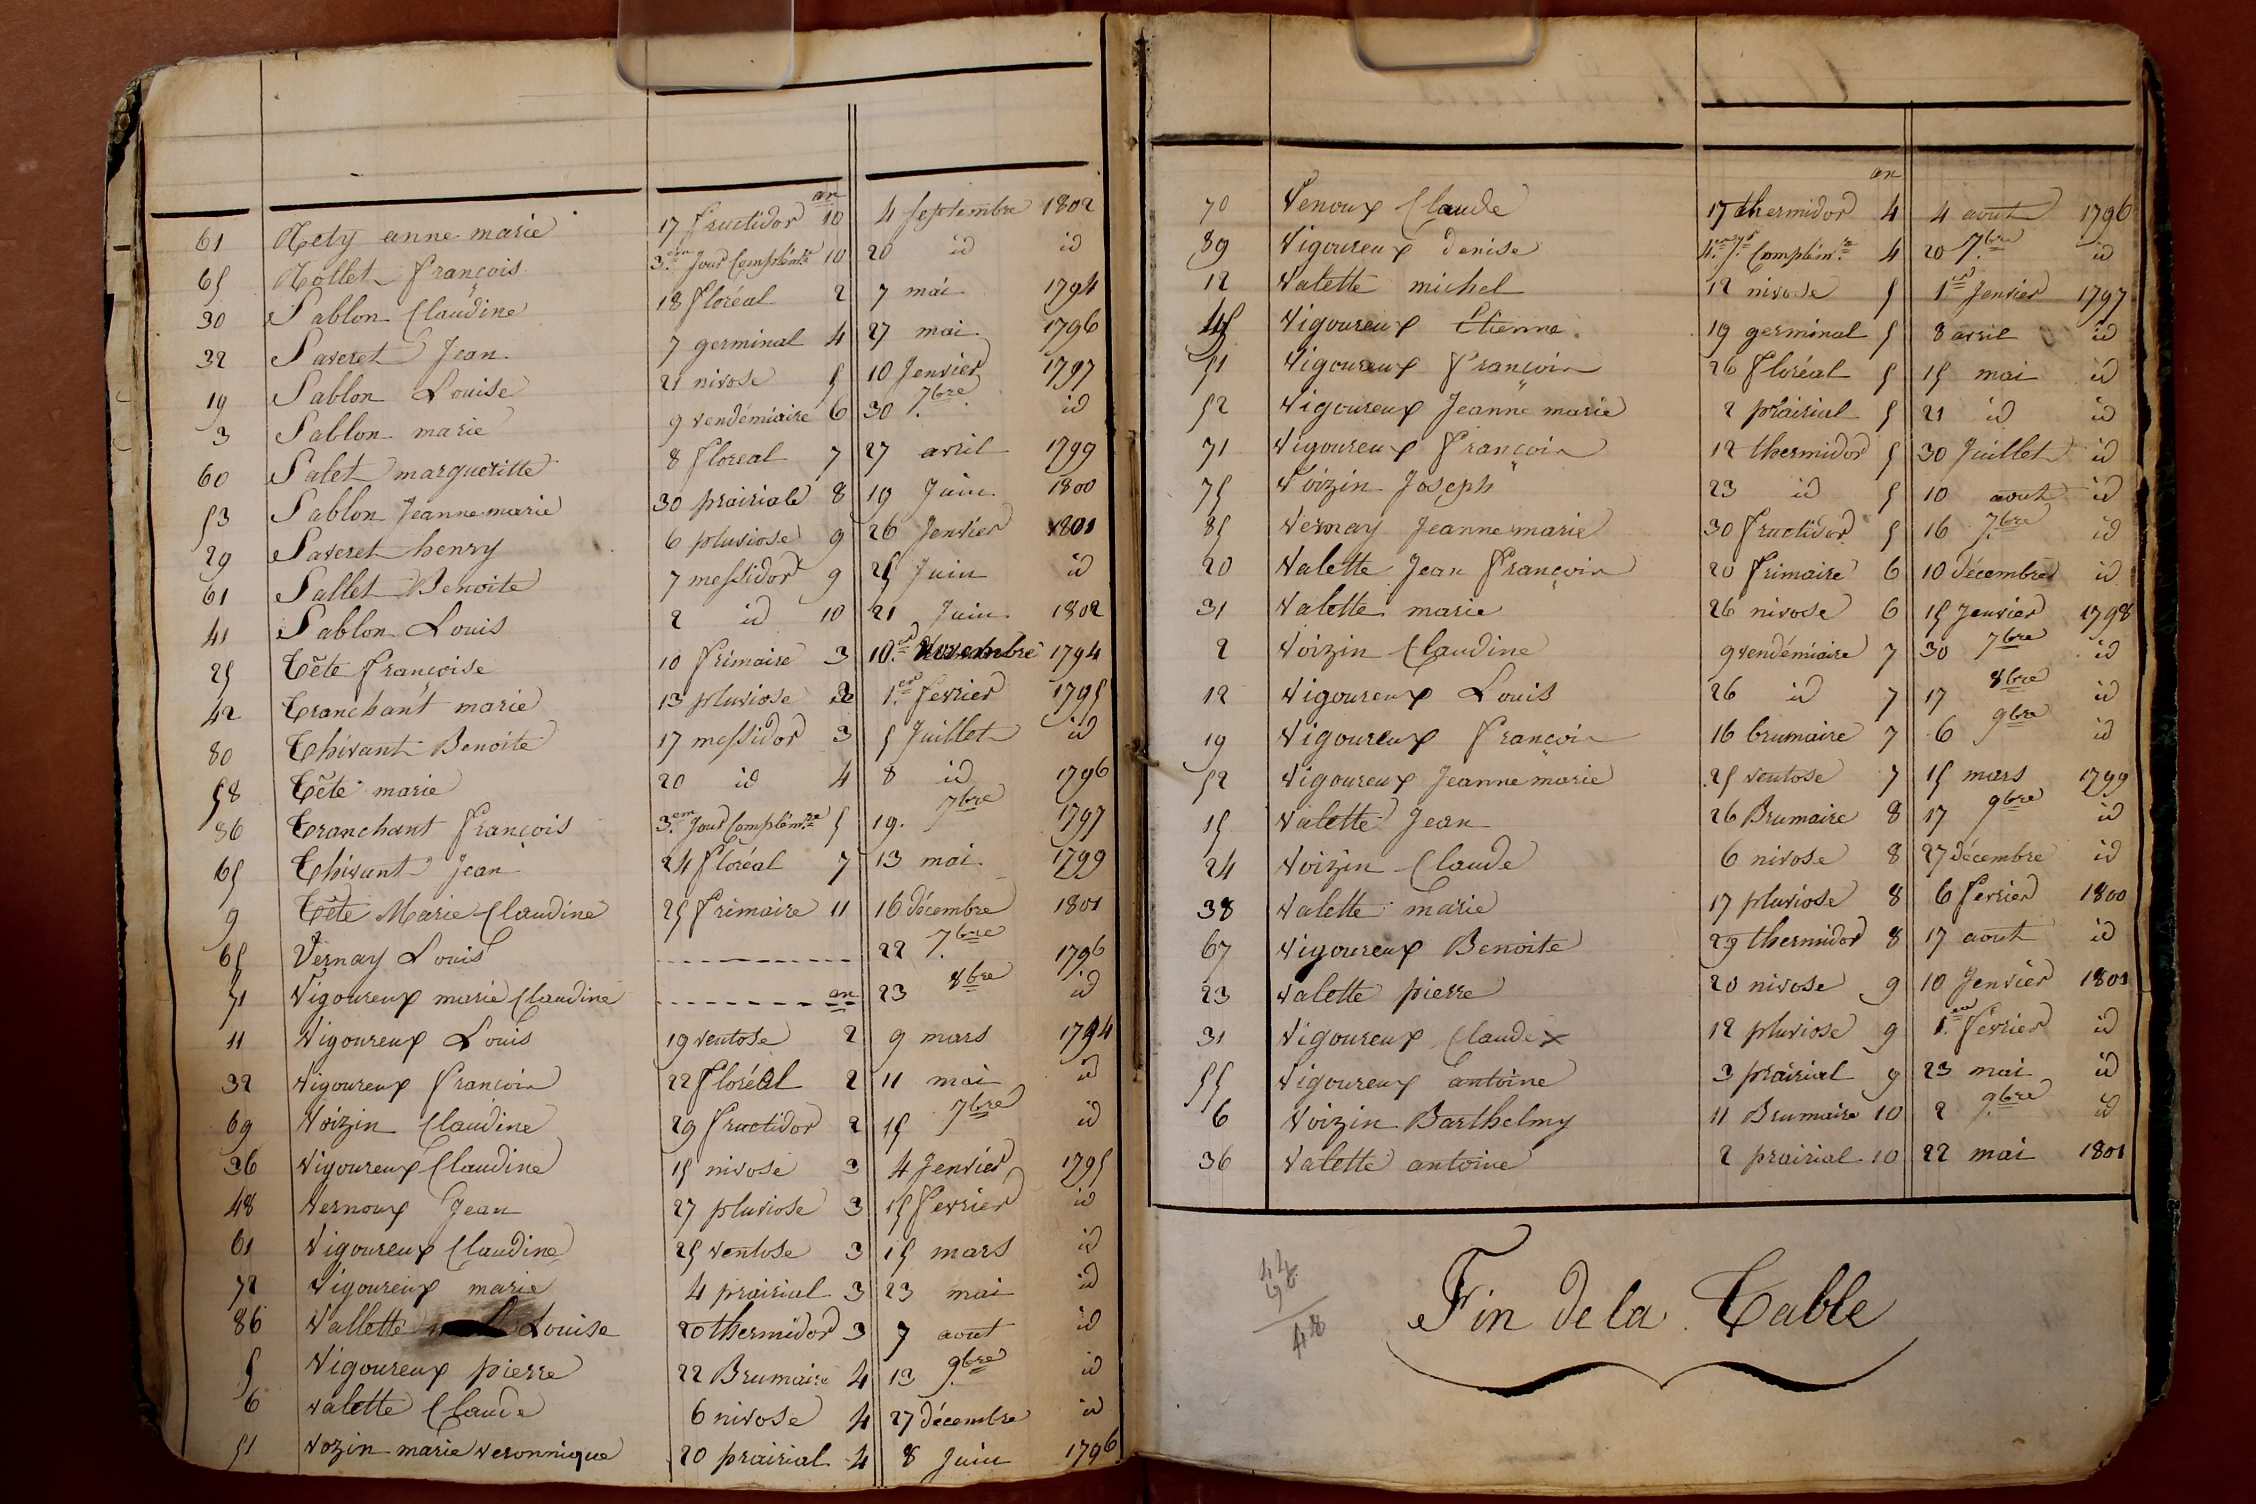 an
61 Rety anne marie 17 fructidor 10 4 septembre 1802
65 Rollet françois 3.em Jour Complém.re 10 20 id id
30 Sablon Claudine 18 floréal 2 7 mai 1794
32 Saveret Jean 7 germinal 4 27 mai 1796
19 Sablon Louise 21 nivose 5 10 Jenvier 1797
3 Sablon marie 9 vendémiaire 6 30 7bre id
60 Salet margueritte 8 floreal 7 27 avril 1799
53 Sablon Jeanne marie 30 prairiale 8 19 Juin 1800
29 Saveret henry 6 pluviose 9 26 Jenvier 1801
61 Sallet Benoite 7 messidor 9 25 Juin id
41 Sablon Louis 2 id 10 21 Juin 1802
25 Tête françoise 10 frimaire 3 Novembre 1794
42 Tranchant marie 13 pluviose 1.er fevrier 1795
80 Thivant Benoite 17 messidor 3 5 Juillet id
58 Tête marie 20 id 4 8 id 1796
86 Tranchant françois 3.em Jour Complém.re 5 19. 7bre 1797
65 Thivant Jean 24 floréal 7 13 mai 1799
9 Tête Marie Claudine 25 frimaire 11 16 décembre 1801
65 Vernay Louis 22 7bre 1796
71 Vigoureux marie Claudine an 23 8bre id
11 Vigoureux Louis 19 ventose 2 9 mars 1794
32 Vigoureux françois 22 floréal 2 11 mai id
69 Voizin Claudine 29 fructidor 2 15 7bre id
36 Vigoureux Claudine 15 nivose 3 4 Jenvier 1795
48 Vernoux Jean 27 pluviose 3 15 fevrier id
61 Vigoureux Claudine 25 ventose 3 15 mars id
72 Vigoureux marie 4 prairial 3 23 mai id
86 Vallette Louise 20 thermidor 3 7 aout id
5 Vigoureux pierre 22 Brumaire 4 13 9bre id
6 valette Claude 6 nivose 4 27 décembre id
51 Vozin marie veronnique 20 prairial 4 8 Juin 1796
an
70 Venoux Claude 17 thermidor 4 4 aout 1796
89 Vigoureux denise 4.em J.r Complém.re 4 20 7bre id
12 Valette michel 12 nivose 5 1.er Jenvier 1797
45 Vigoureux Etienne 19 germinal 5 8 avril id
51 Vigoureux françois 26 floréal 5 15 mai id
52 Vigoureux Jeanne marie 2 prairial 5 21 id id
71 Vigoureux françois 12 thermidor 5 30 Juillet id
75 Voizin Joseph 23 id 5 10 aout id
85 Vernay Jeanne marie 30 fructidor 5 16 7bre id
20 Valette Jean françois 20 frimaire 6 10 décembre id
31 Valette marie 26 nivose 6 15 Jenvier 1798
2 Voizin Claudine 9 vendémiaire 7 30 7bre id
12 Vigoureux Louis 26 id 7 17 8bre id
19 Vigoureux françois 16 brumaire 7 6 9bre id
52 Vigoureux Jeanne marie 25 ventose 7 15 mars 1799
15 Valette Jean 26 Brumaire 8 17 9bre id
24 Voizin Claude 6 nivose 8 27 décembre id
38 Valette marie 17 pluviose 8 6 fevrier 1800
67 Vigoureux Benoite 29 thermidor 8 17 aout id
23 Valette pierre 20 nivose 9 10 Jenvier 1801
31 Vigoureux Claude 12 pluviose 9 1.er fevrier id
55 Vigoureux antoine 3 prairial 9 23 mai id
6 Voizin Barthelmy 11 Brumaire 10 2 9bre id
36 Valette antoine 2 prairial 10 22 mai 1801
48
Fin de la Table